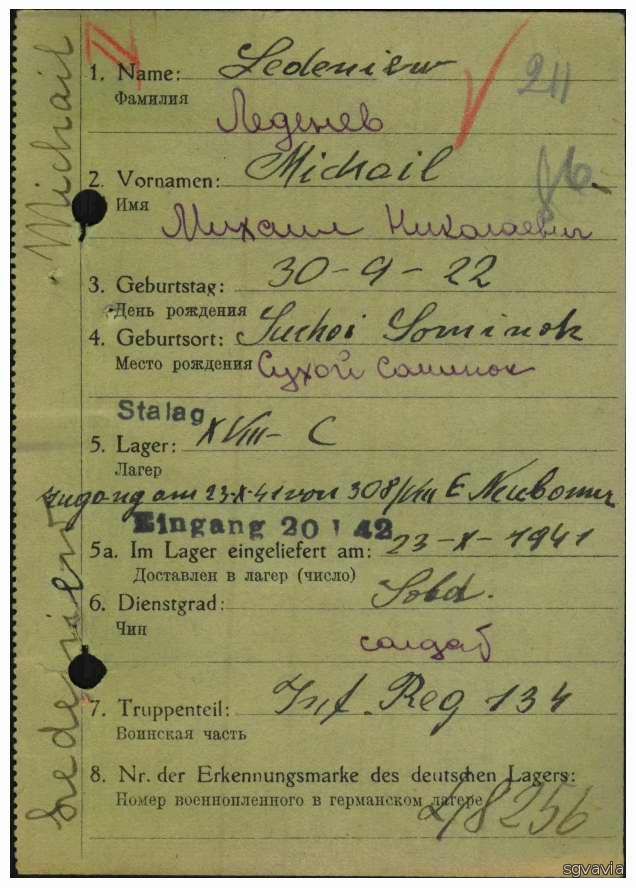 Michail
1. Name: Ledeniew
Фамилия
Леденев
211
2. Vornamen: Michail
Имя
Михаил Николаевич
3. Geburtstag: 30-9-22
День рождения
4. Geburtsort: Suchoi Sominok
Место рождения Сухой Соминок
Stalag
5. Lager: XVIII-C
Лагер
Zugang am 23-X-41 von 308
Eingang 20 1 42
5a. Im Lager eingeliefert am: 23-X-1941
Доставлен в лагер (число)
6. Dienstgrad: Sold.
Чин
солдат
7. Truppenteil: Inf. Reg 134
Воинская часть
8. Nr. der Erkennungsmarke des deutschen Lagers:
Номер военнопленного в германском лагере
48256
sgvavia